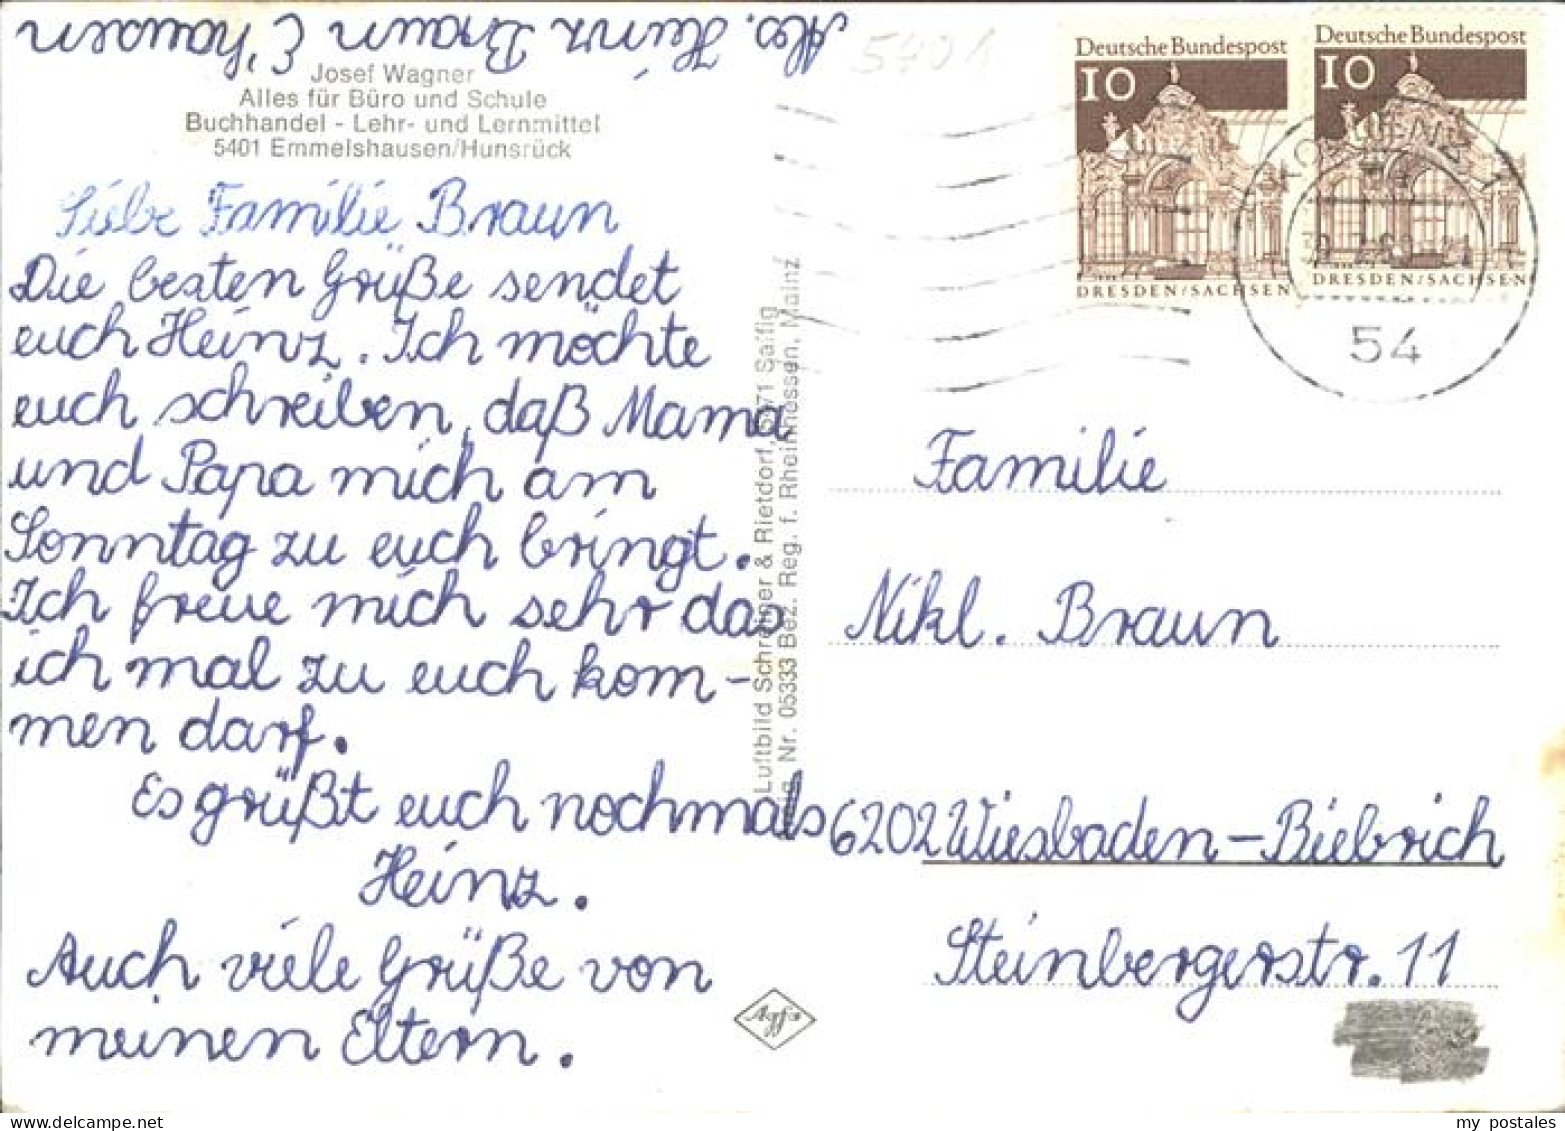 Abs. Heinz Braun E'hausen
5401
Josef Wagner
Alles für Büro und Schule
Buchhandel - Lehr- und Lernmittel
5401 Emmelshausen/Hunsrück
Liebe Familie Braun
Die besten Grüße sendet
euch Heinz. Ich möchte
euch schreiben, daß Mama
und Papa mich am
Sonntag zu euch bringt.
Ich freue mich sehr das
ich mal zu euch kom-
men darf.
Es grüßt euch nochmals
Heinz.
Auch viele Grüße von
meinen Eltern.
Luftbild Schreiner & Rietdorf, 5471 Saffig
Nr. 05333 Bez. Reg. f. Rheinhessen, Mainz
Agfa
Deutsche Bundespost
10
DRESDEN/SACHSEN
Deutsche Bundespost
10
DRESDEN/SACHSEN
KOBLENZ 1
54
Familie
Nikl. Braun
6202 Wiesbaden-Biebrich
Steinbergerstr. 11
my postales